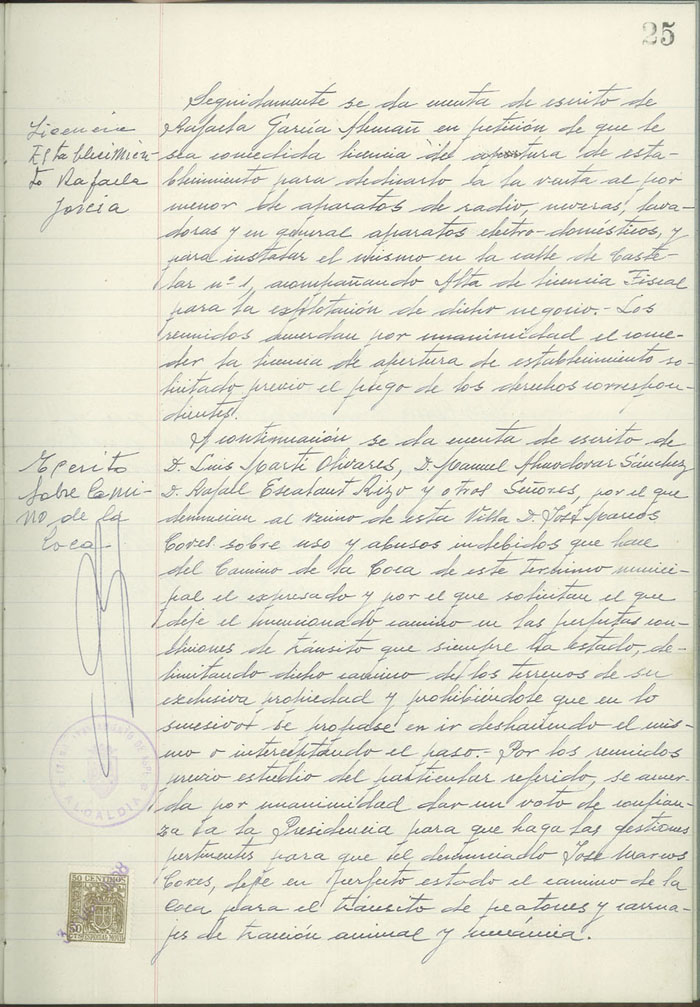 25
Licencia
Establecimien-
to Rafaela
García
Seguidamente se da cuenta de escrito de
Rafaela García Alemañ en petición de que le
sea concedida licencia de apertura de esta-
blecimiento para dedicarlo a la venta al por
menor de aparatos de radio, neveras, lava-
doras y en general aparatos electro-domésticos, y
para instalar el mismo en la calle de Caste-
lar nº 1, acompañando Alta de licencia Fiscal
para la explotación de dicho negocio.- Los
reunidos acuerdan por unanimidad el conce-
der la licencia de apertura de establecimiento so-
licitado previo el pago de los derechos correspon-
dientes.
Escrito
sobre Cami-
no de la
Coca
A continuación se da cuenta de escrito de
D. Luis Martí Olivares, D. Manuel Almodovar Sánchez
D. Rafael Escolant Rizo y otros Señores, por el que
denuncian al vecino de esta Villa D. José Marcos
Cores sobre uso y abusos indebidos que hace
del Camino de la Coca de este termino munici-
pal el expresado y por el que solicitan el que
deje el mencionado camino en las perfectas con-
diciones de tránsito que siempre ha estado, de-
limitando dicho camino de los terrenos de su
exclusiva propiedad y prohibiéndole que en lo
sucesivo se propase en ir deshaciendo el mis-
mo o interceptando el paso.- Por los reunidos
previo estudio del particular referido, se acuer-
da por unanimidad dar un voto de confian-
za a la Presidencia para que haga las gestiones
pertinentes para que el denunciado José Marcos
Cores, deje en perfecto estado el camino de la
Coca para el tránsito de peatones y carrua-
jes de tracción animal y mecánica.
AYUNTAMIENTO DE
ALCALDIA
50 CENTIMOS
50
CTS ESPECIAL MOVIL